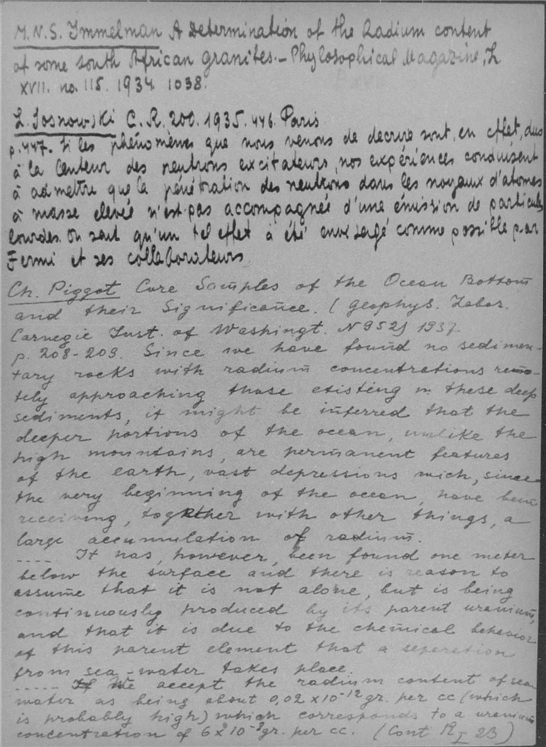 M.N.S. Immelman A Determination of the Radium content
of some south African granites. – Phylosophical Magazine, L
XVII. no. 115. 1934 1038.
L. Sosnowski C.R. 200. 1935. 446. Paris
p. 447. Si les phénomènes que nous venons de decrire sont, en effet, dus
à la lenteur des neutrons excitateurs, nos expériences conduisent
à admettre que la pénétration des neutrons dans les noyaux d'atomes
à masse elevée n'est pas accompagnée d'une émission de particules
lourdes. On sait qu'un tel effet à été envisagé comme possible par
Fermi et ses collaborateurs
Ch. Piggot Core Samples of the Ocean Bottom
and their Significance. (Geophys. Labor.
Carnegie Inst. of Washingt. N 952) 1937.
p. 208-209. Since we have found no sedimen-
tary rocks with radium concentrations remo-
tely approaching those existing in these deep
sediments, it might be inferred that the
deeper portions of the ocean, unlike the
high mountains, are permanent features
of the earth, vast depressions wich, since
the very beginning of the ocean, have been
receiving, together with other things, a
large accumulation of radium.
.... It has, however, been found one meter
below the surface and there is reason to
assume that it is not alone, but is being
continuously produced by its parent uranium,
and that it is due to the chemical behavior
of this parent element that a seperation
from sea-water takes place.
..... If we accept the radium content of sea
water as being about 0,02 x 10-12 gr. per cc (which
is probably high) which corresponds to a uranium
concentration of gr. per cc. (Cont